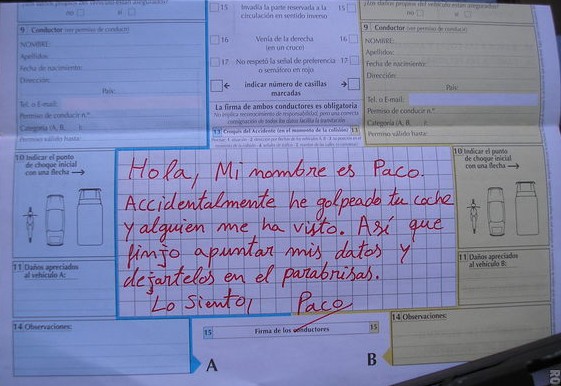 no si
15 Invadía la parte reservada a la 15
circulación en sentido inverso
no si
9 Conductor (ver permiso de conducir)
NOMBRE:
Apellidos:
Fecha de nacimiento:
Dirección:
País:
Tel. o E-mail:
Permiso de conducir n.º
Categoría (A, B, )
Permiso válido hasta:
16 Venía de la derecha 16
(en un cruce)
17 No respetó la señal de preferencia 17
o semáforo en rojo
indicar número de casillas
marcadas
La firma de ambos conductores es obligatoria
13 Croquis del Accidente (en el momento de la colisión) 13
9 Conductor (ver permiso de conducir)
NOMBRE:
Apellidos:
Fecha de nacimiento:
Dirección:
País:
Tel. o E-mail:
Permiso de conducir n.º
Categoría (A, B, )
Permiso válido hasta:
10 Indicar el punto
de choque inicial
con una flecha
Hola, Mi nombre es Paco.
Accidentalmente he golpeado tu coche
y alguien me ha visto. Así que
finjo apuntar mis datos y
dejártelos en el parabrisas.
Lo siento, Paco
10 Indicar el punto
de choque inicial
con una flecha
11 Daños apreciados
al vehículo A:
11 Daños apreciados
al vehículo B:
14 Observaciones:
15 Firma de los conductores 15
A B
14 Observaciones: